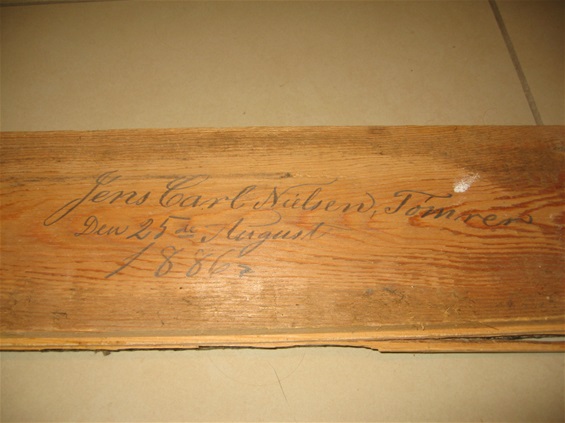 Jens Carl Nielsen, Tömrer
Den 25de August
1886